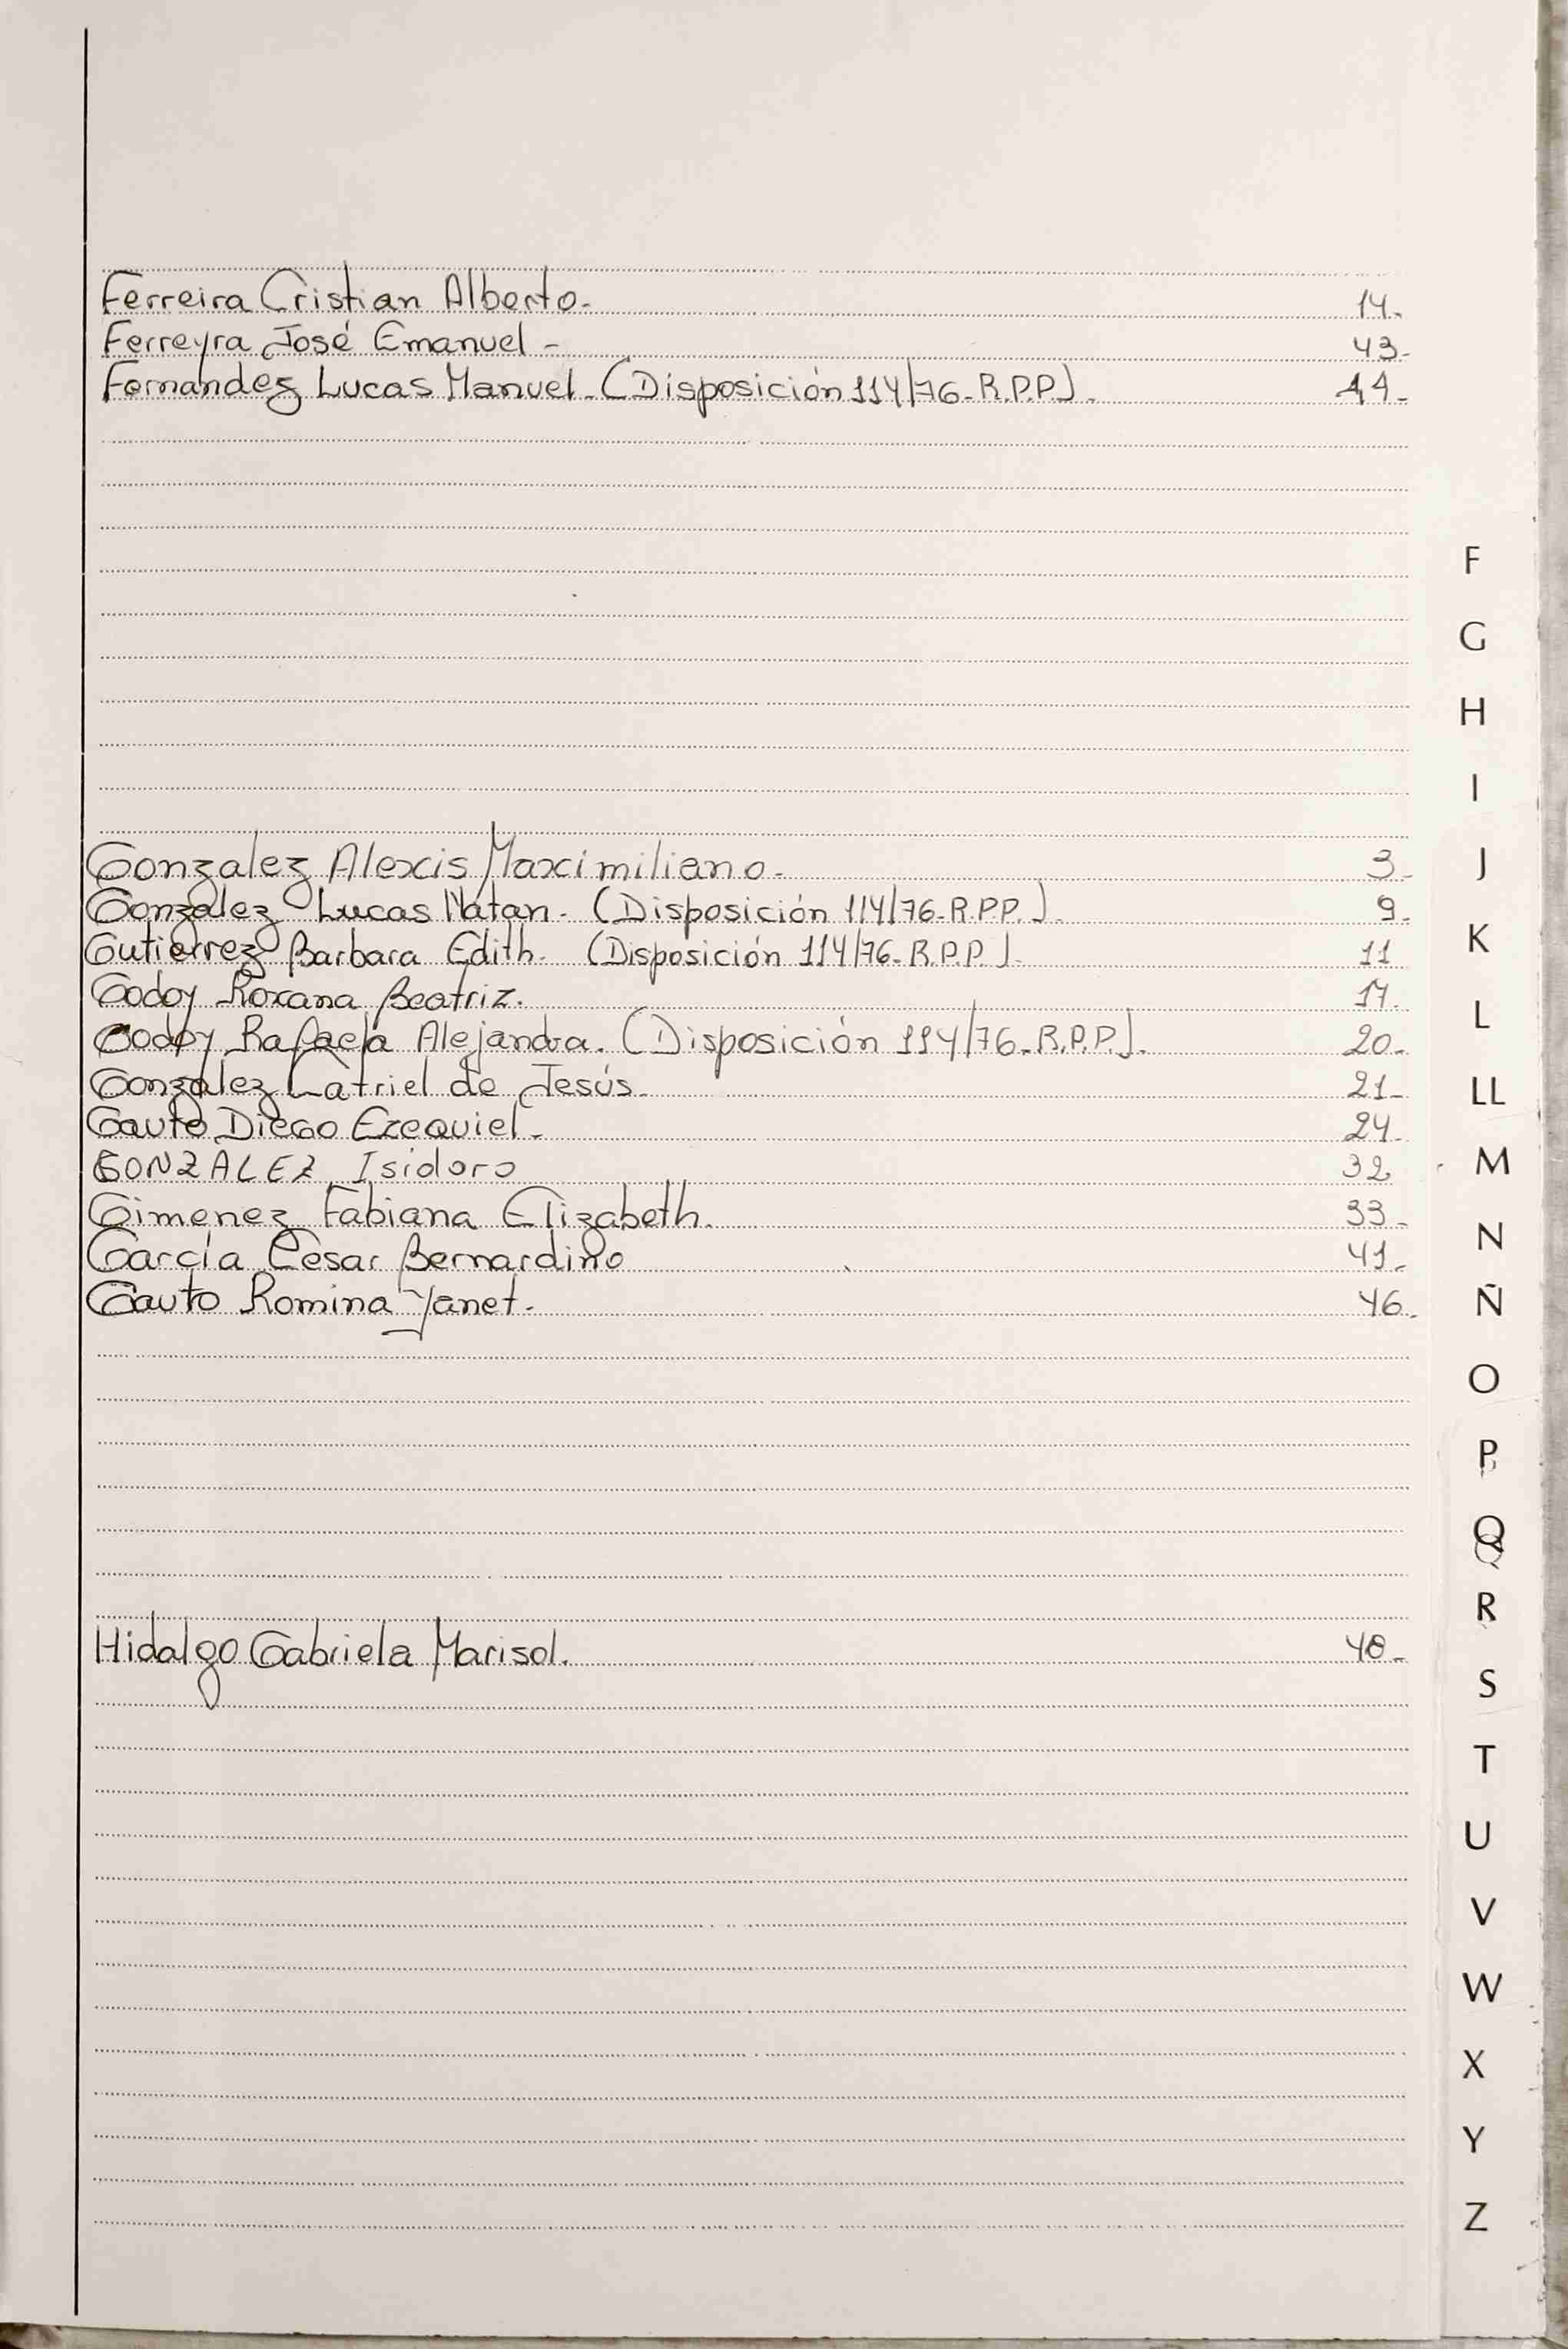 Ferreira Cristian Alberto. 14.
Ferreyra José Emanuel - 43-
Fernandez Lucas Manuel. (Disposición 114/76-R.P.P.). 44-
F
G
H
I
Gonzalez Alexis Maximiliano. 3-
J
Gonzalez Lucas Natan. (Disposición 114/76-R.P.P.). 9-
K
Gutierrez Barbara Edith. (Disposición 114/76-R.P.P.). 11
Godoy Roxana Beatriz. 17.
L
Godoy Rafaela Alejandra. (Disposición 114/76-R.P.P.). 20-
Gonzalez Catriel de Jesús. 21-
LL
Gauto Diego Ezequiel- 24-
GONZALEZ Isidoro 32
M
Gimenez Fabiana Elizabeth. 33-
N
García César Bernardino 41-
Gauto Romina Yanet. 46-
Ñ
O
P
Q
R
Hidalgo Gabriela Marisol. 48-
S
T
U
V
W
X
Y
Z